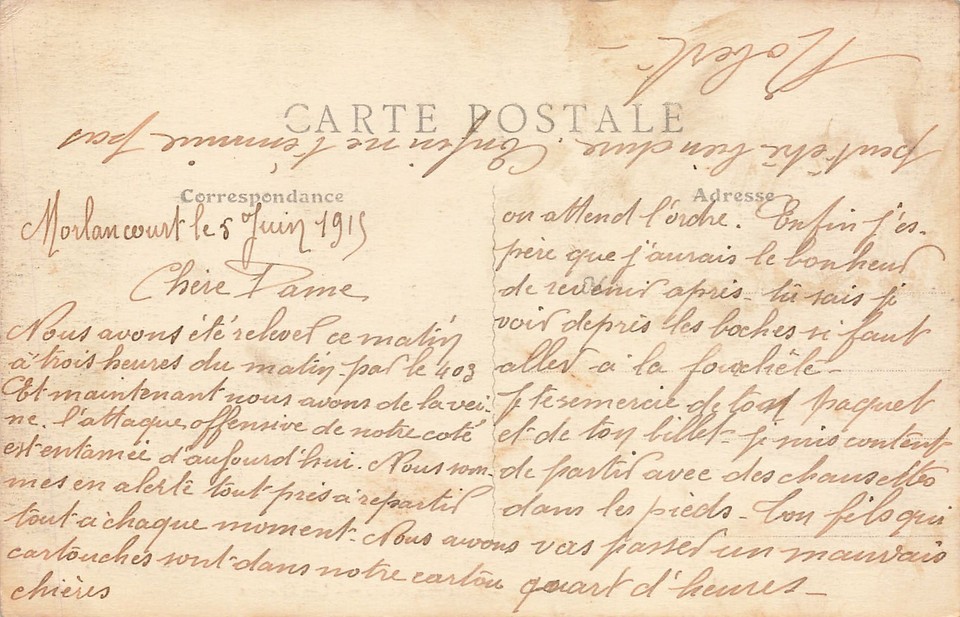 CARTE POSTALE
Correspondance
Morlancourt le 5 Juin 1915
Chère Dame
Nous avons été relever ce matin
à trois heures du matin par le 403
Et maintenant nous avons de la vei-
ne. l'attaque offensive de notre coté
est entamée d'aujourd'hui. Nous som-
mes en alerte tout près à repartir
tout à chaque moment - Nous avons
cartouches sont dans notre cartou
chières
Adresse
on attend l'ordre. Enfin j'es-
père que j'aurais le bonheur
de revenir après - tu sais je
voir depris les boches si faut
aller à la
je te remercie de ton paquet
et de ton billet - je suis content
de partir avec des chausettes
dans les pieds - Ton fils qui
vas passer un mauvais
quart d'heures -
peut être bien dure Enfin ne t'énnuie pas
Robert -